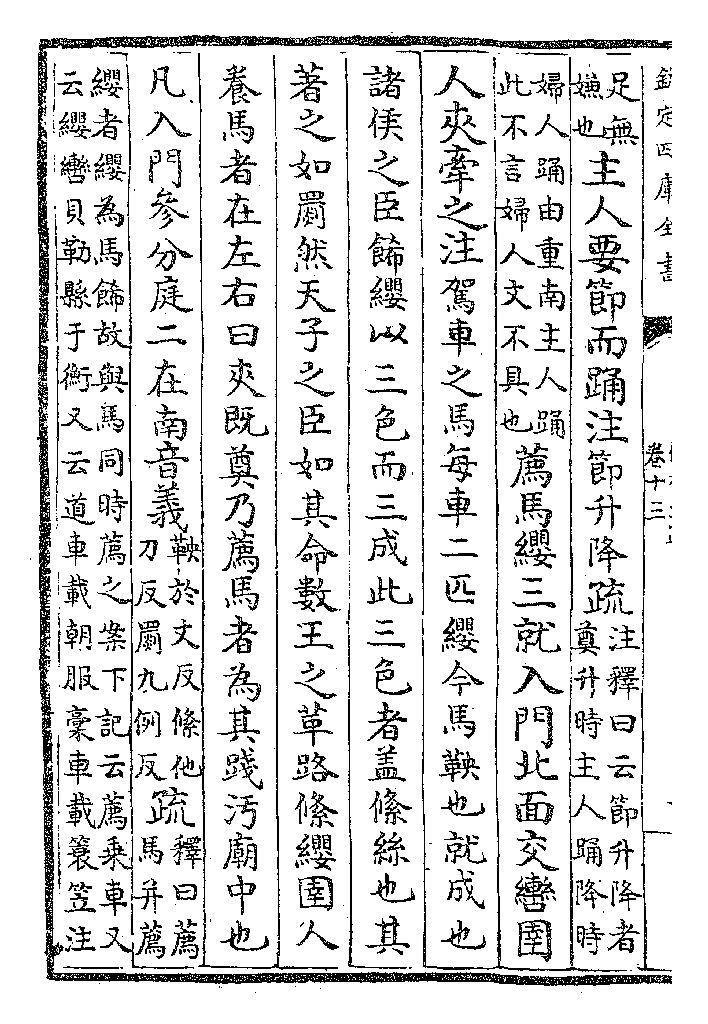 欽定四庫全書
卷十三
足無
嫌也
主人要節而踊注節升降疏
注釋曰云節升降者
奠升時主人踊降時
婦人踊由重南主人踊
此不言婦人文不具也
薦馬纓三就入門北面交轡圉
人夾牽之注駕車之馬每車二匹纓今馬鞅也就成也
諸侯之臣飾纓以三色而三成此三色者盖絛絲也其
著之如罽然天子之臣如其命數王之革路絛纓圉人
養馬者在左右曰夾既奠乃薦馬者為其踐汚廟中也
凡入門參分庭二在南音義
鞅於丈反絛他
刀反罽九例反
疏
釋曰薦
馬并薦
纓者纓為馬飾故與馬同時薦之案下記云薦乘車又
云纓轡貝勒縣于衡又云道車載朝服槀車載簑笠注